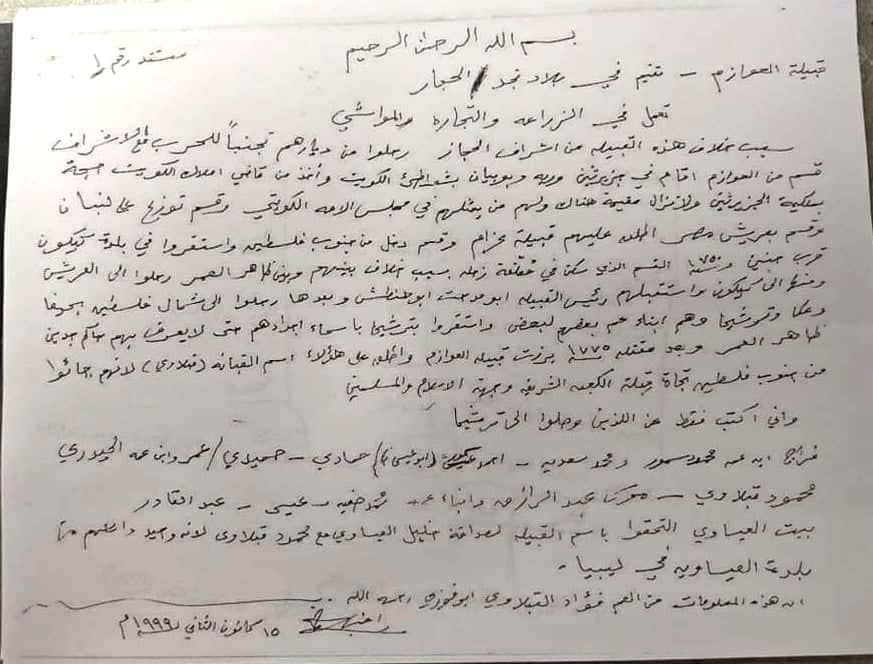 بسم الله الرحمن الرحيم
مستند رقم ١
قبيلة العوازم - تقيم في بلاد نجد / الحجاز
تعمل في الزراعه والتجاره والمواشي
سبب خلاف هذه القبيله من اشراف الحجاز رحلوا من ديارهم تجنباً للحرب مع الاشراف
قسم من العوازم اقام في جزيرتين وربه وبوبيان بشواطئ الكويت وأخذ من قاضي املاك الكويت حجة
بملكية الجزيرتين ولا تزال مقيمة هناك ولهم من يمثلهم في مجلس الامه الكويتي وقسم توزع على لبنان
وقسم بعريش مصر اطلق عليهم قبيلة حزام وقسم دخل من جنوب فلسطين واستقروا في بلدة سيكلون
قرب جنين و ١٧٥٠ القسم الذي سكن في زمله بسبب خلاف بينهم وبين ظاهر العمر رحلوا الى العريش
ومنها الى سيكلون واستقبلهم رئيس القبيله ابو مدحت ابو حنطش وبعدها رحلوا الى شمال فلسطين بحيفا
وعكا وترشيحا وهم ابناء عم بعضهم لبعض واستقروا بترشيحا باسماء اجدادهم حتى لا يعرف بهم حاكم
ظاهر العمر وبعد مقتله ١٧٧٥ برزت قبيلة العوازم واطلق على هؤلاء اسم القبلنه (قبلاوي) لانهم جائوا
من جنوب فلسطين تجاة قبلة الكعبه الشريفه وجهة الاسلام والمسلمين
واني أكتب فقط عن اللذين وصلوا الى ترشيحا
فراج ابن عمه محمود سمور ومحمد سعديه - احمد (ابو عيسى) حمادي - حميدي / عمر وابن عمه الحيلاري
محمود قبلاوي - عبد الرازق وابناء عمه محمد صفيه - عيسى - عبد القادر
بيت العيساوي التحقوا باسم القبيله لصداقة خليل العيساوي مع محمود قبلاوى لانه وحيد واصلهم من
بلدة العيساويه في ليبيا -
ان هذه المعلومات من العم فؤاد القبلاوي ابو فوزي رحمه الله
١٥ كانون الثاني ١٩٩٩ م